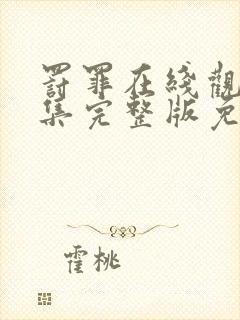 罸罪在綫觀
集完整版免
霍桃